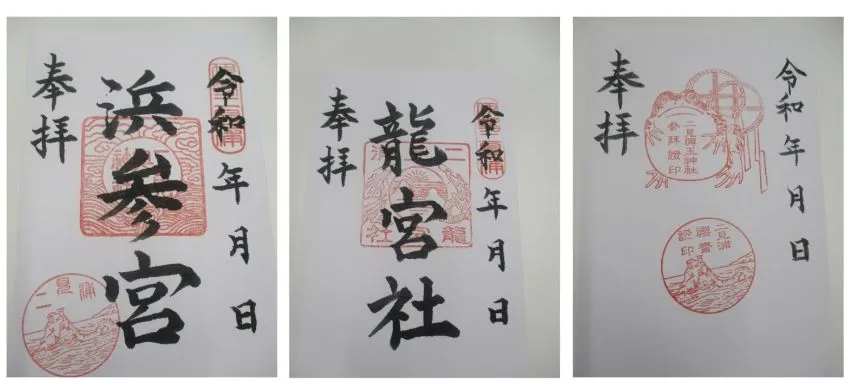 令和 年 月 日
浜参宮
奉拝
二見浦
令和 年 月 日
龍宮社
奉拝
令和 年 月 日
奉拝
二見興玉神社
参拝證印
二見浦
證印